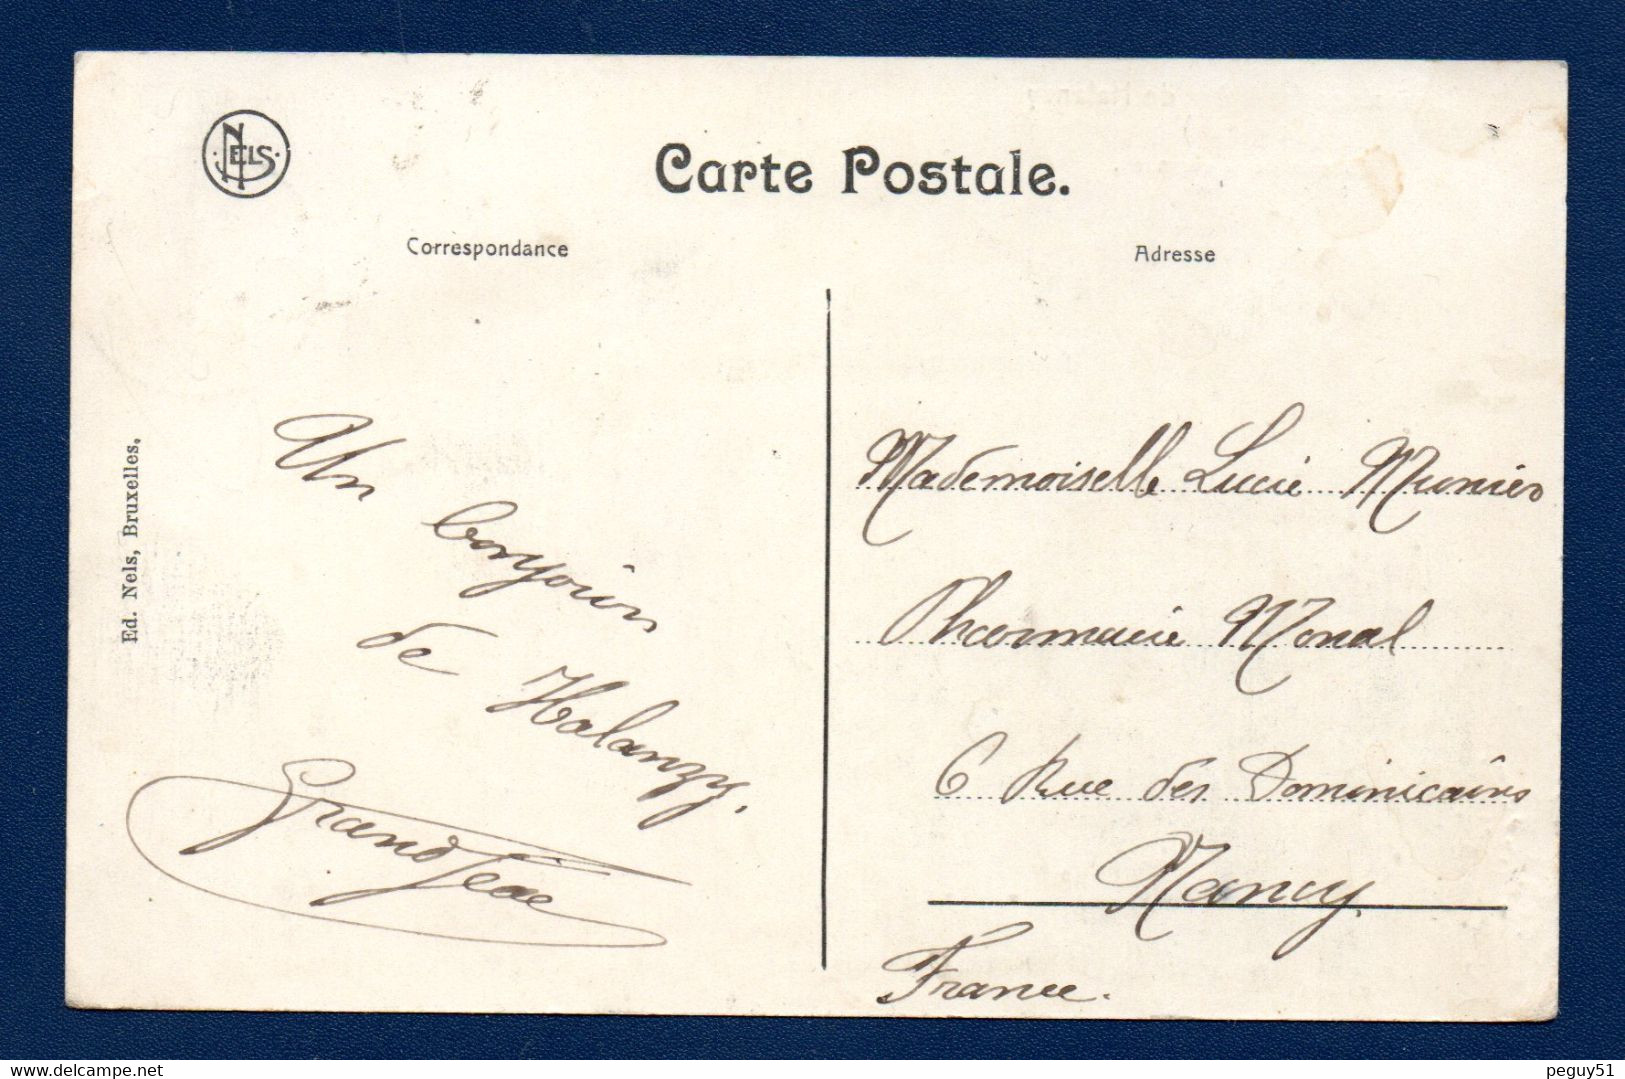 NELS
Carte Postale.
Correspondance
Adresse
Ed. Nels, Bruxelles.
Un
bonjour
de Halanzy.
Mademoiselle Lucie Munier
Pharmacie Monal
6 Rue des Dominicains
Nancy
France.
peguy51